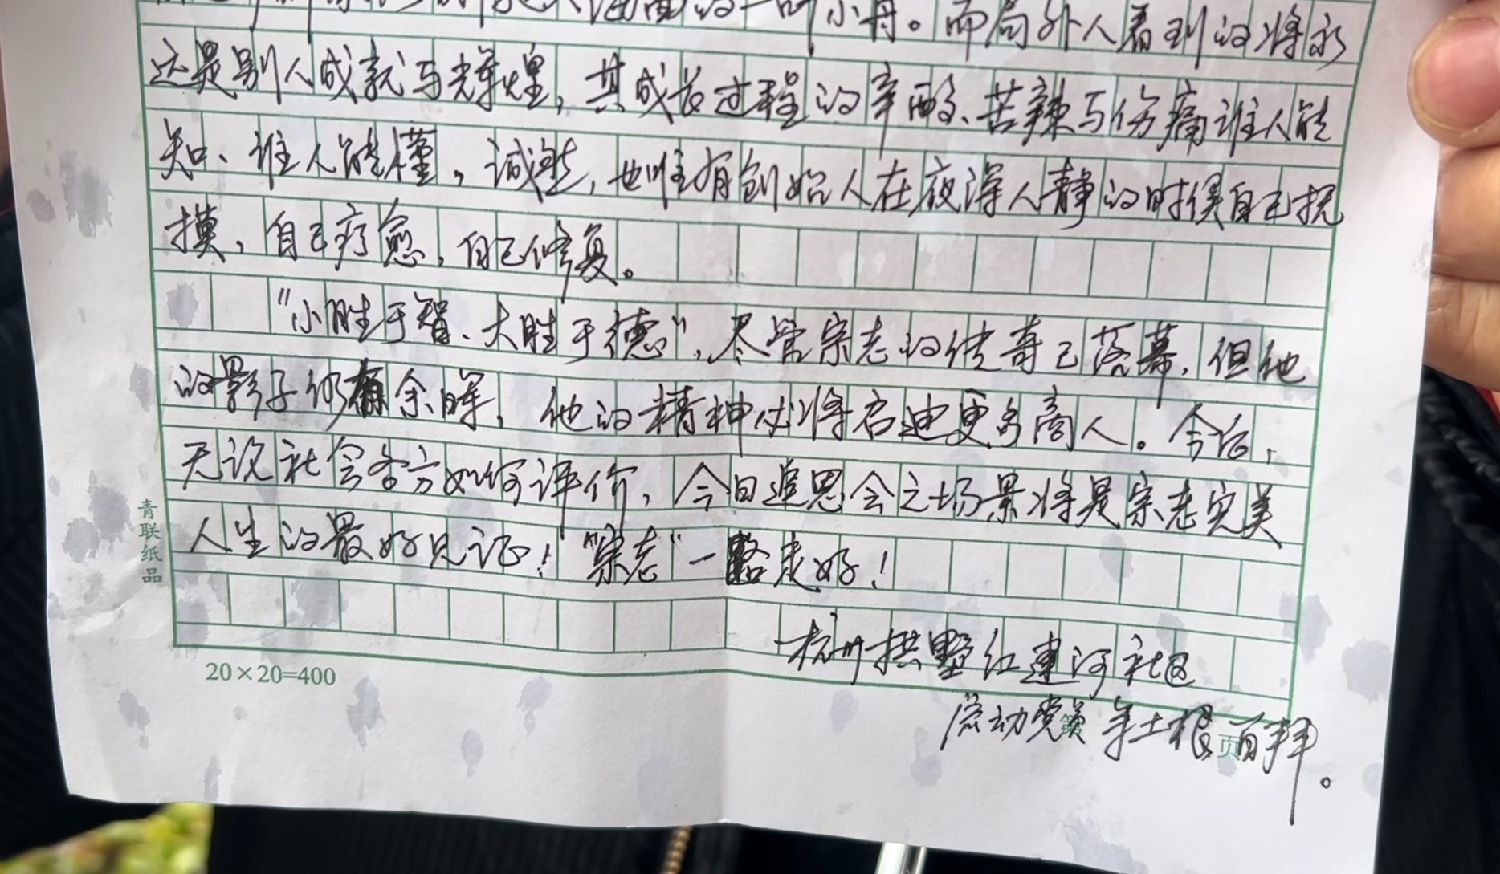 海面的一叶小舟。而局外人看到的将永
还是别人成就与辉煌，其成长过程的辛酸、苦辣与伤痛谁人能
知、谁人能懂，诚然，也唯有创始人在夜深人静的时候自己抚
摸，自己疗愈，自己修复。
“小胜于智、大胜于德”，尽管宗老的传奇已落幕，但他
的影子仍有余晖，他的精神必将启迪更多商人。今后，
无论社会各方如何评价，今日追思会之场景将是宗老完美
人生的最好见证！“宗老”一路走好！
青联纸品
20×20=400
杭州拱墅红建河社区
流动党员 年土根 百拜。
页